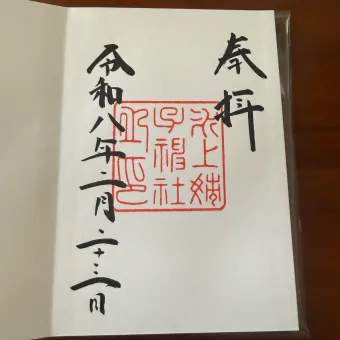 奉拝
氷上姉
子神社
之印
令和八年二月二十三日